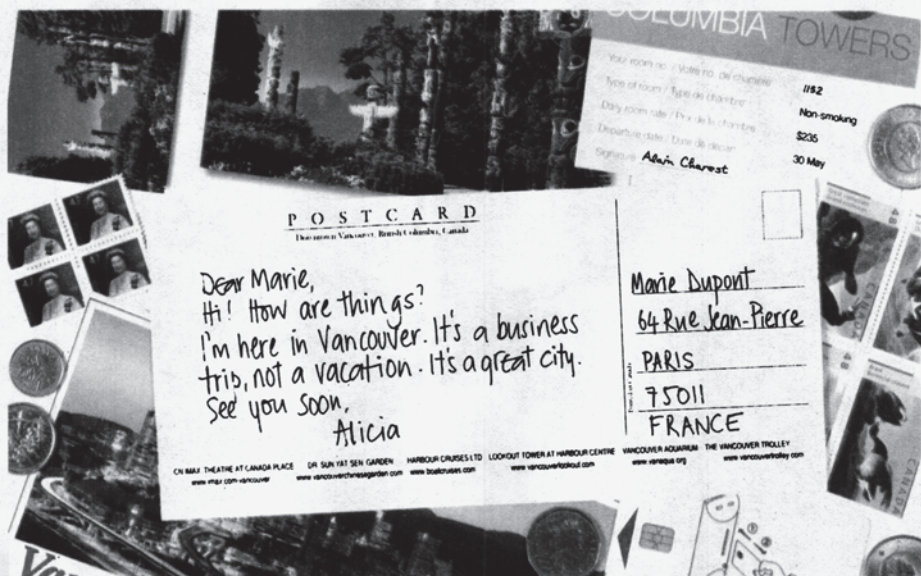 COLUMBIA TOWERS
Your room no. / Votre no. de chambre 1182
Type of room / Type de chambre Non-smoking
Daily room rate / Prix de la chambre $235
Departure date / Date de départ 30 May
Signature Alain Charest
POSTCARD
Downtown Vancouver, British Columbia, Canada
Dear Marie,
Hi! How are things?
I'm here in Vancouver. It's a business
trip, not a vacation. It's a great city.
See you soon,
Alicia
Marie Dupont
64 Rue Jean-Pierre
PARIS
75011
FRANCE
CN IMAX THEATRE AT CANADA PLACE
www.imax.com/vancouver
DR SUN YAT SEN GARDEN
www.vancouverchinesegarden.com
HARBOUR CRUISES LTD
www.boatcruises.com
LOOKOUT TOWER AT HARBOUR CENTRE
www.vancouverlookout.com
VANCOUVER AQUARIUM
www.vanaqua.org
THE VANCOUVER TROLLEY
www.vancouvertrolley.com
CANADA
CANADA